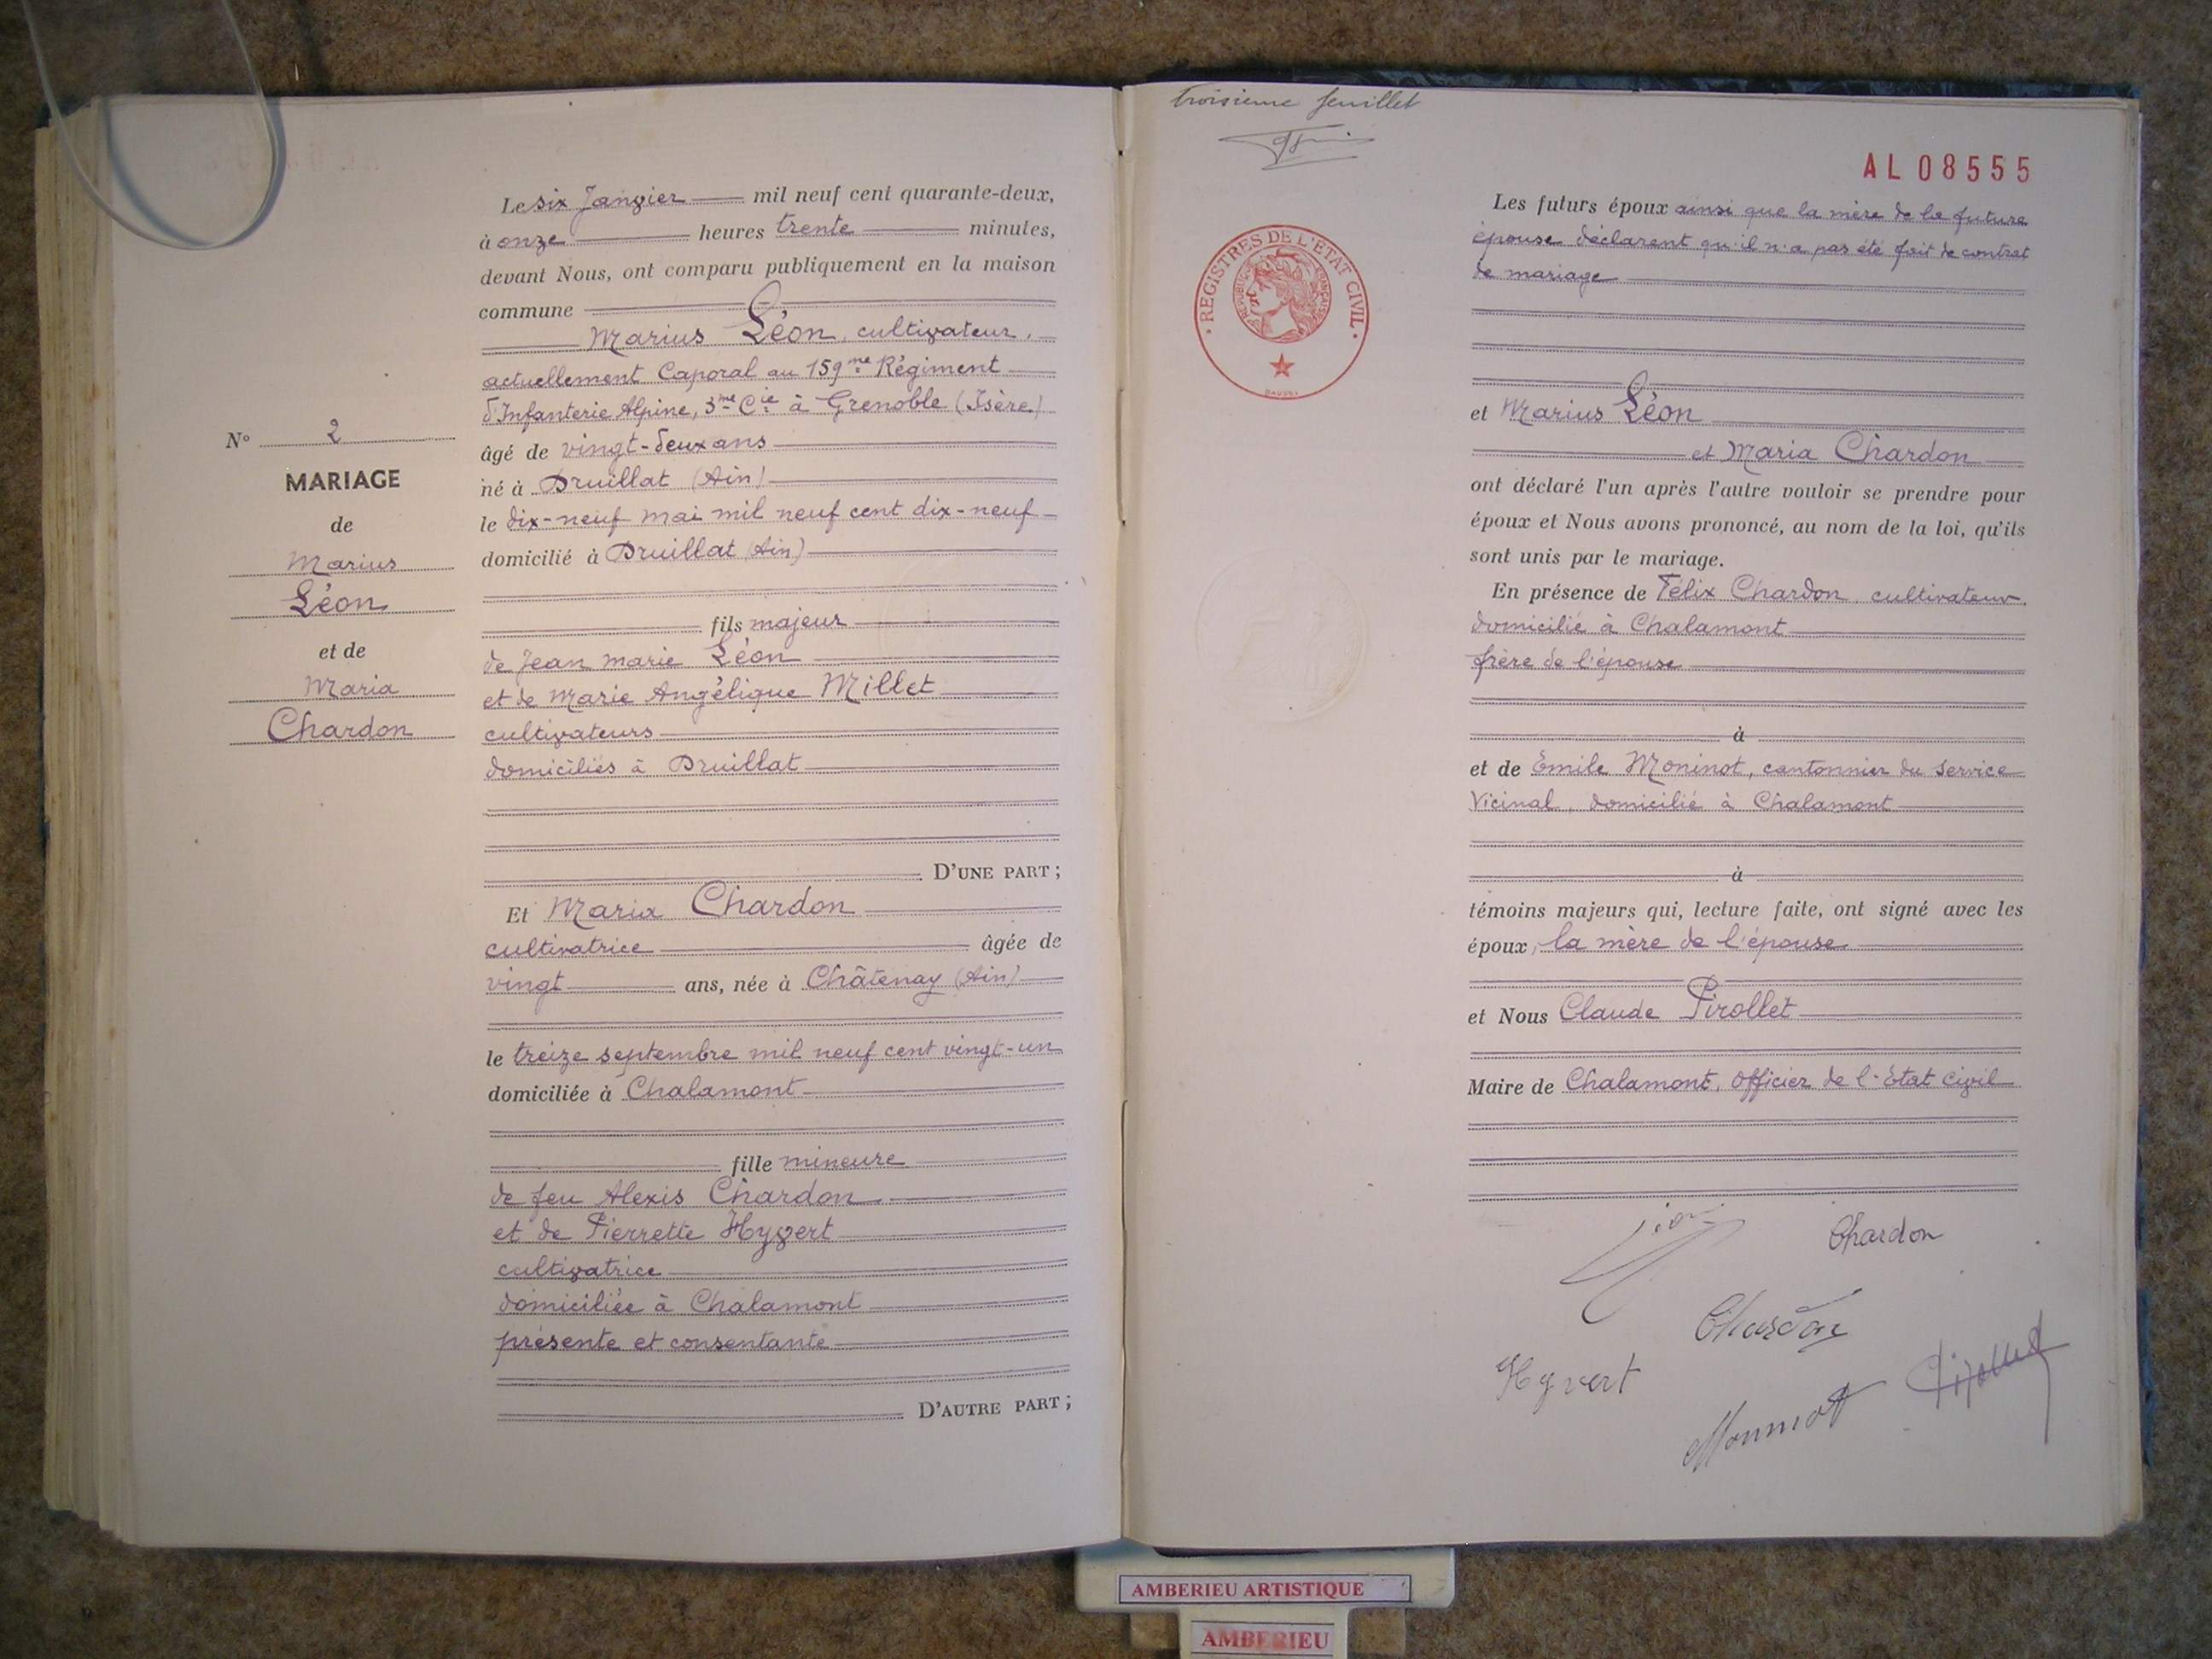 N° 2
MARIAGE
de
Marius
Léon
et de
Maria
Chardon
Le six Janvier mil neuf cent quarante-deux,
à onze heures trente minutes,
devant Nous, ont comparu publiquement en la maison
commune
Marius Léon, cultivateur,
actuellement Caporal au 159me Régiment
d'Infanterie Alpine, 3me Cie à Grenoble (Isère)
âgé de vingt-deux ans
né à Druillat (Ain)
le dix-neuf mai mil neuf cent dix-neuf
domicilié à Druillat (Ain)
fils majeur
de Jean Marie Léon
et de Marie Angélique Millet
cultivateurs
domiciliés à Druillat
D'UNE PART ;
Et Maria Chardon
cultivatrice âgée de
vingt ans, née à Châtenay (Ain)
le treize septembre mil neuf cent vingt-un
domiciliée à Chalamont
fille mineure
de feu Alexis Chardon
et de Pierrette Hyvert
cultivatrice
domiciliée à Chalamont
présente et consentante
D'AUTRE PART ;
troisième feuillet
AL 08555
REGISTRES DE L'ÉTAT CIVIL
RÉPUBLIQUE FRANÇAISE
Les futurs époux ainsi que la mère de la future
épouse déclarent qu'il n'a pas été fait de contrat
de mariage
et Marius Léon
et Maria Chardon
ont déclaré l'un après l'autre vouloir se prendre pour
époux et Nous avons prononcé, au nom de la loi, qu'ils
sont unis par le mariage.
En présence de Félix Chardon cultivateur,
domicilié à Chalamont
frère de l'épouse
à
et de Emile Moninot, cantonnier du service
Vicinal, domicilié à Chalamont
à
témoins majeurs qui, lecture faite, ont signé avec les
époux, la mère de l'épouse
et Nous Claude Pirollet
Maire de Chalamont, Officier de l'Etat Civil
Chardon
Chardon
Hyvert
Pirollet
AMBERIEU ARTISTIQUE
AMBERIEU